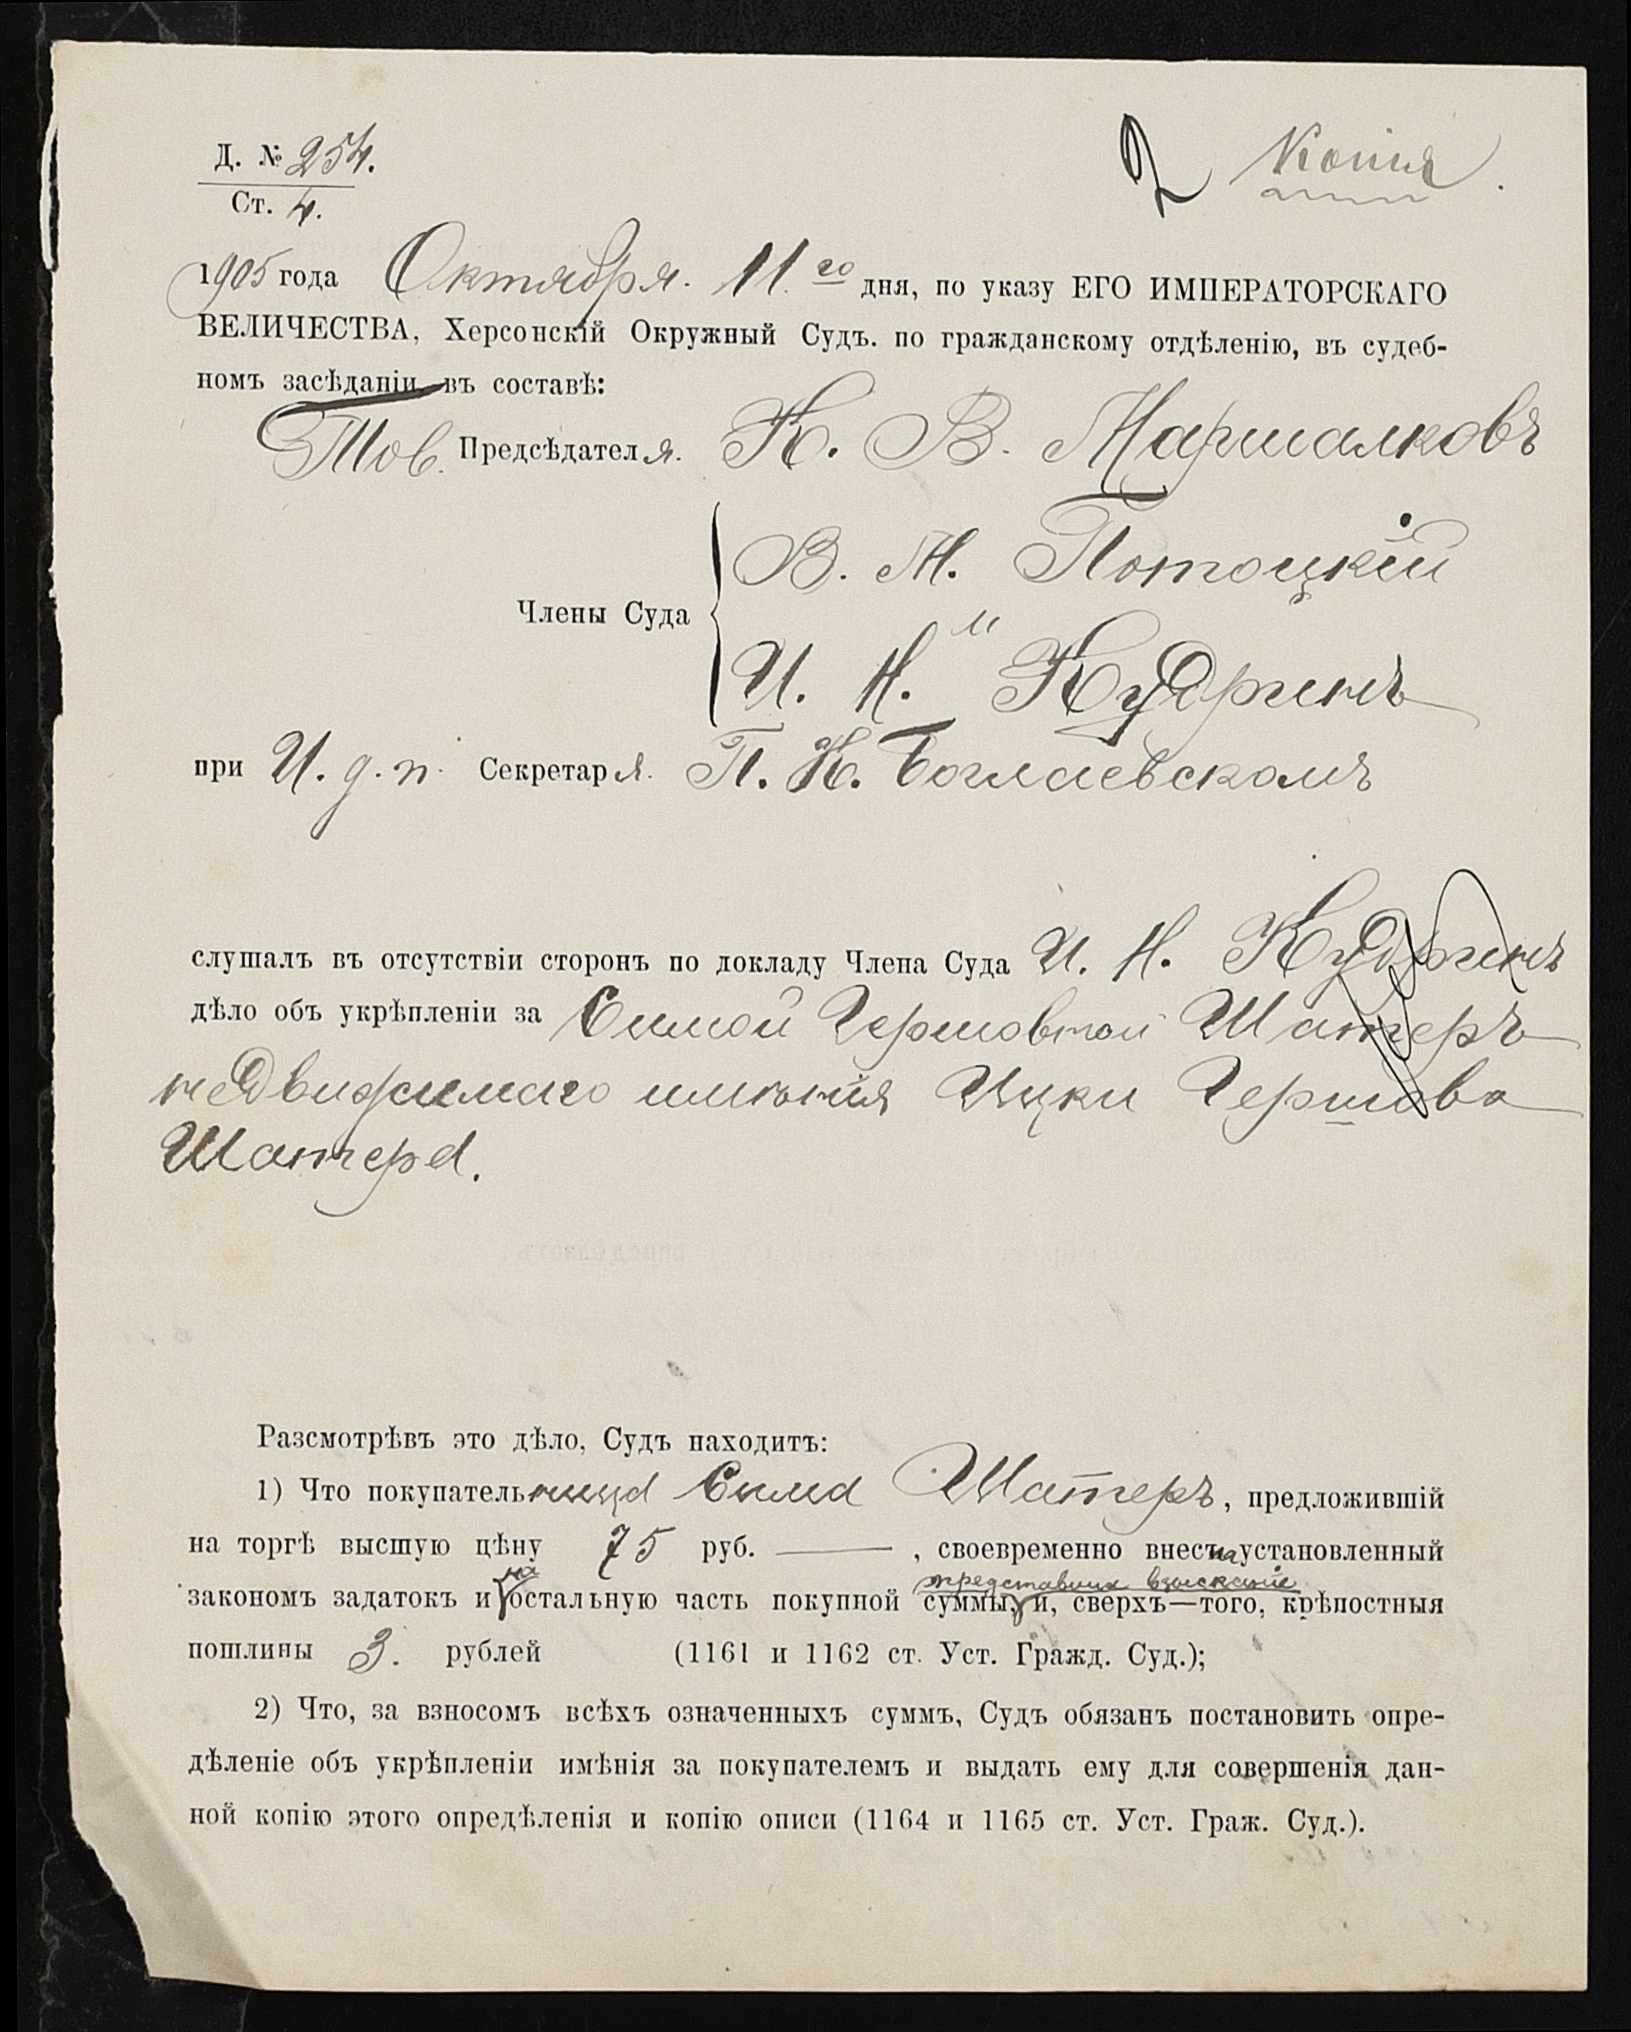 Д. № 254.
Ст. 4.
2 Копія.
1905 года Октября. 11го дня, по указу ЕГО ИМПЕРАТОРСКАГО
ВЕЛИЧЕСТВА, Херсонскій Окружный Судъ. по гражданскому отдѣленію, въ судеб-
номъ засѣданіи въ составѣ:
Тов. Предсѣдателя. К. В. Маршалковъ
В. М. Потоцкій
Члены Суда
И. Н. Кудринъ
при И. д. п. Секретаря. П. К. Боглаевскомъ
слушалъ въ отсутствіи сторонъ по докладу Члена Суда И. Н. Кудринъ
дѣло объ укрѣпленіи за Симой Гершовной Шатеръ
недвижимаго имѣнія Ицки Гершова
Шатера.
Разсмотрѣвъ это дѣло, Судъ находитъ:
1) Что покупательница Сима Шатеръ, предложившій
на торгѣ высшую цѣну 75 руб. ——— , своевременно внесла установленный
на представила взысканіе
закономъ задатокъ и остальную часть покупной суммы, и, сверхъ—того, крѣпостныя
пошлины 3. рублей (1161 и 1162 ст. Уст. Гражд. Суд.);
2) Что, за взносомъ всѣхъ означенныхъ суммъ, Судъ обязанъ постановить опре-
дѣленіе объ укрѣпленіи имѣнія за покупателемъ и выдать ему для совершенія дан-
ной копію этого опредѣленія и копію описи (1164 и 1165 ст. Уст. Граж. Суд.).